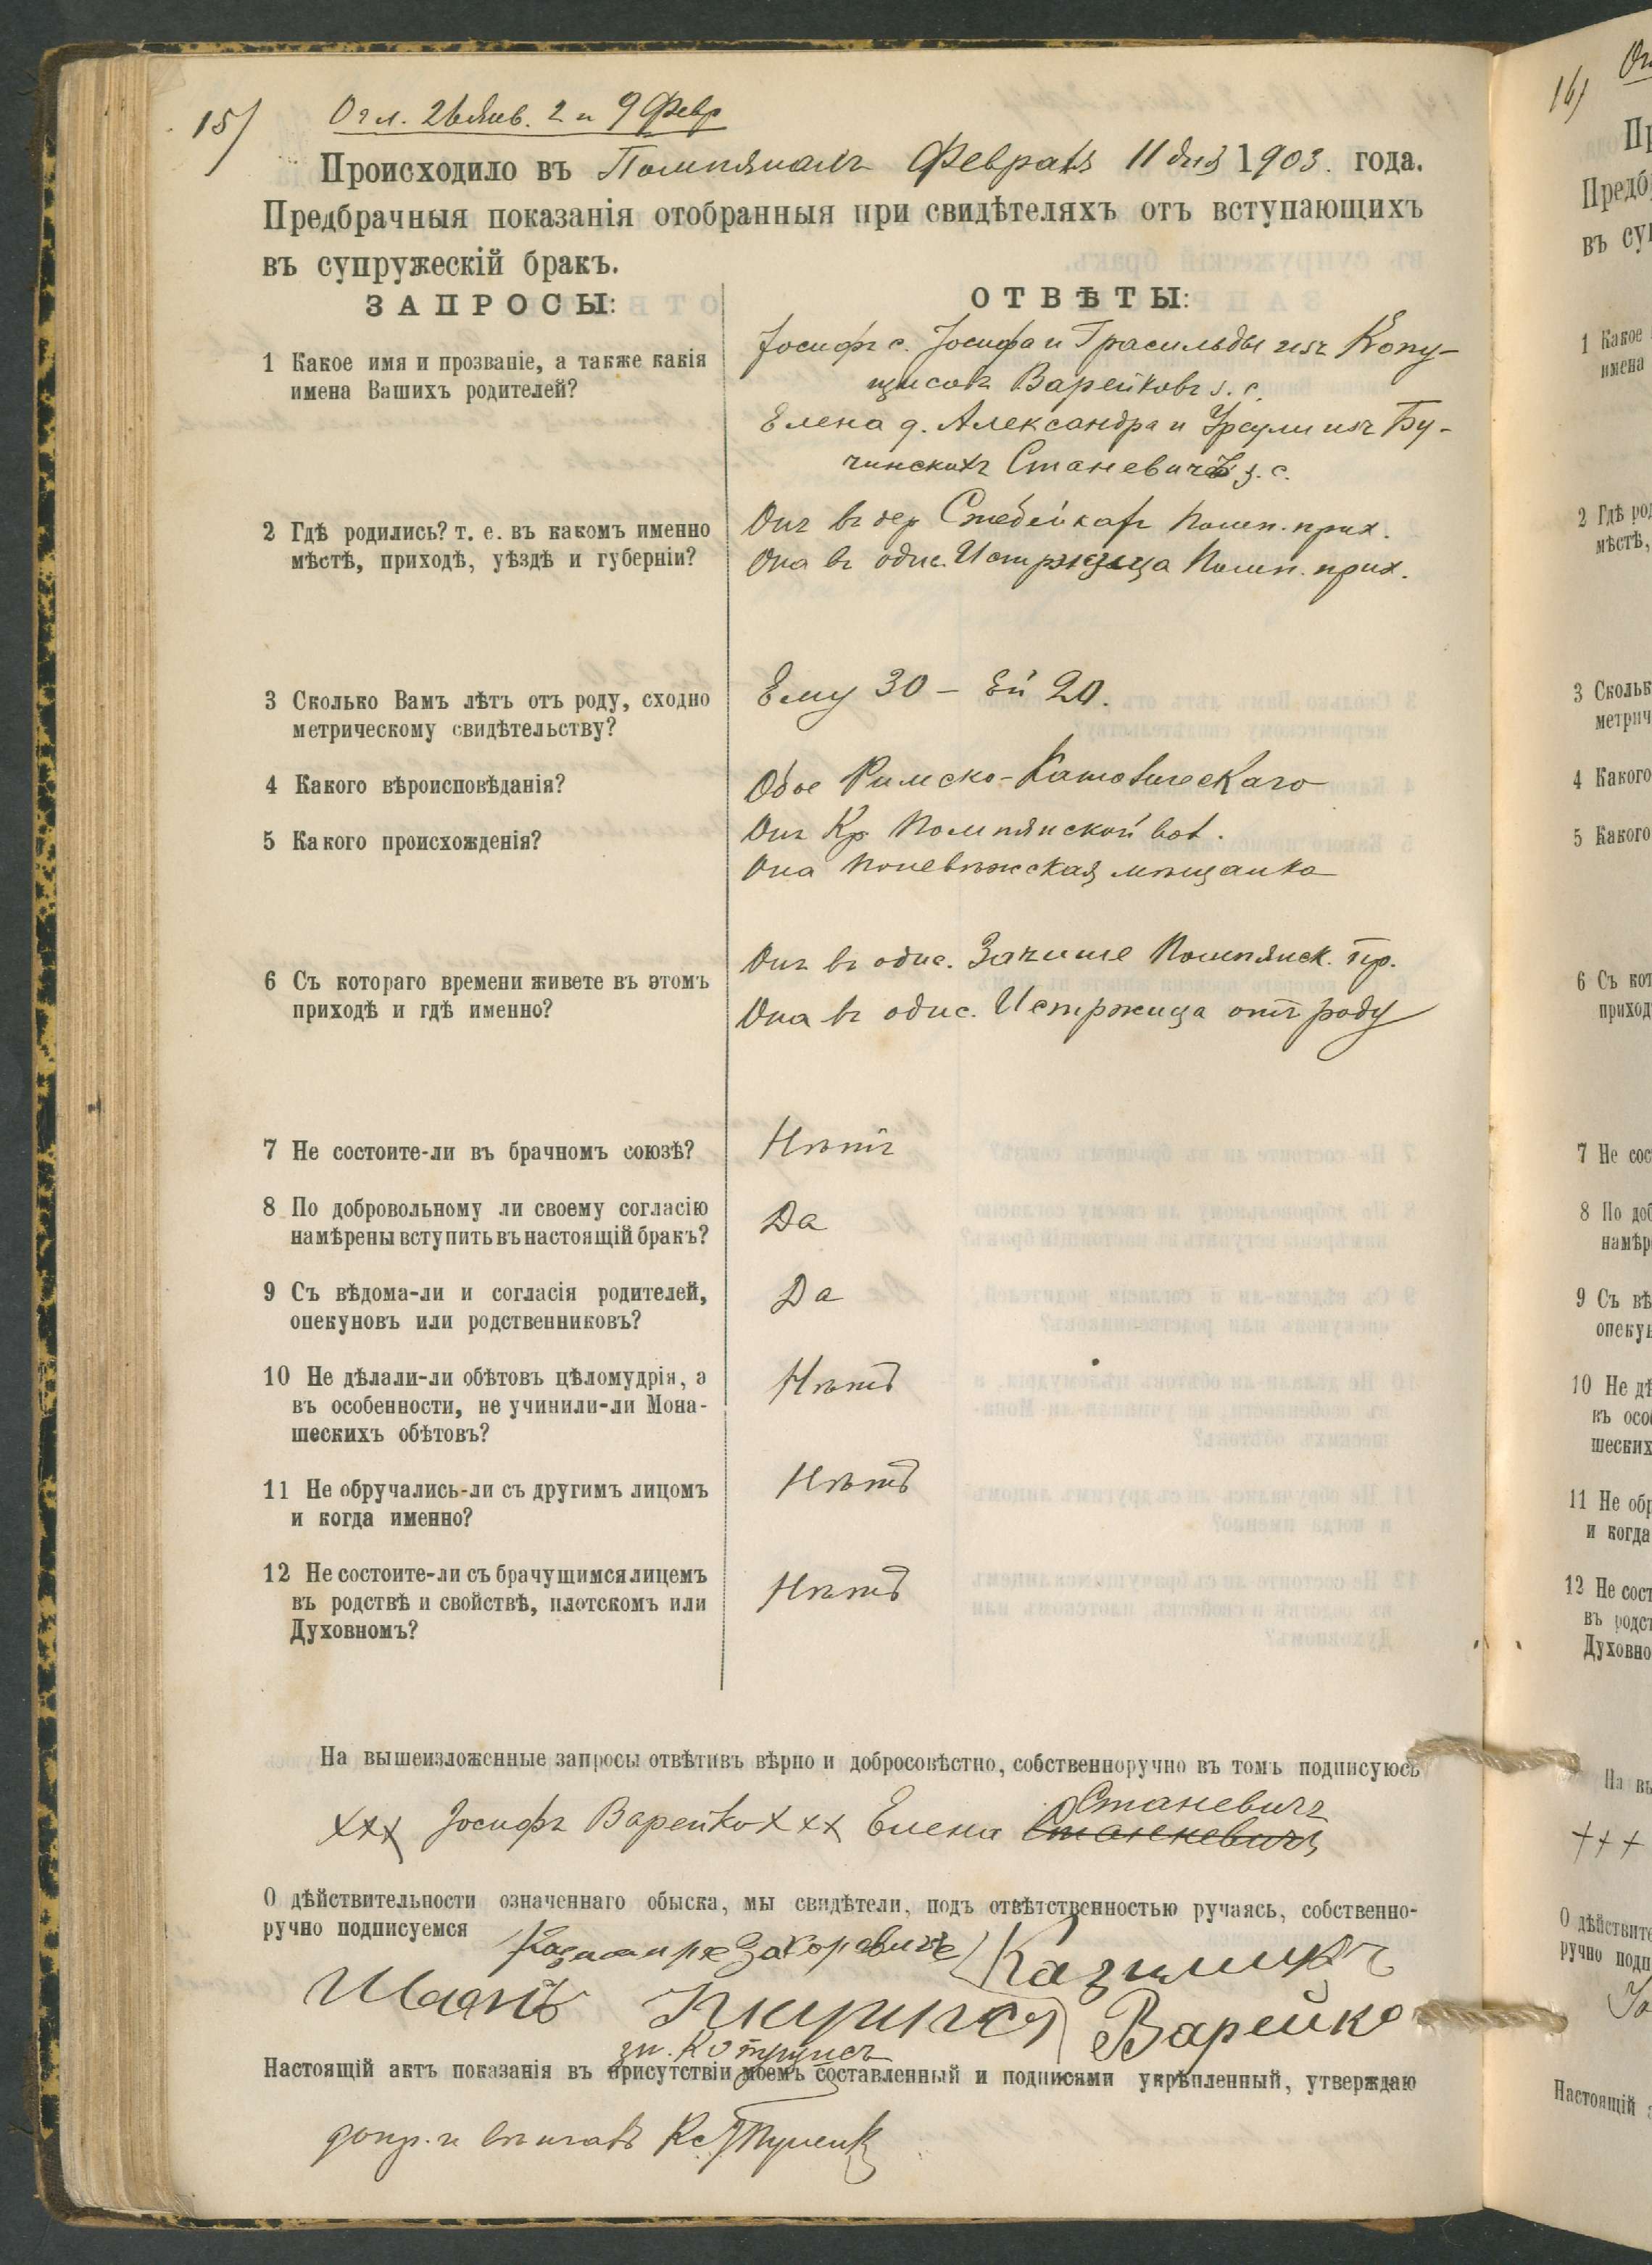 15)
Огл. 26 Янв. 2 и 9 Февр
Происходило въ Помпянахъ Февраля 11 дня 1903. года.
Предбрачныя показанія отобранныя при свидѣтеляхъ отъ вступающихъ
въ супружескій бракъ.
ЗАПРОСЫ:
ОТВѢТЫ:
1 Какое имя и прозваніе, а также какія
имена Вашихъ родителей?
Іосифъ с. Іосифа и Грасильды изъ
Варейковъ з. с.
Елена д. Александра и Урсули изъ Бу-
чинскихъ Станевичъ з. с.
2 Гдѣ родились? т. е. въ какомъ именно
мѣстѣ, приходѣ, уѣздѣ и губерніи?
Онъ въ дер Стебейкахъ Помп. прих.
Она въ одис. Истржица Помп. прих.
3 Сколько Вамъ лѣтъ отъ роду, сходно
метрическому свидѣтельству?
Ему 30 – Ей 20.
4 Какого вѣроисповѣданія?
Обое Римско-Католическаго
5 Какого происхожденія?
Онъ Кр. Помпянской вол.
Она Поневѣжская мѣщанка
6 Съ котораго времени живете въ этомъ
приходѣ и гдѣ именно?
Онъ въ одис. Зачише Помпянск. пр.
Она въ одис. Истржица отъ роду
7 Не состоите-ли въ брачномъ союзѣ?
Нѣтъ
8 По добровольному ли своему согласію
намѣрены вступить въ настоящій бракъ?
Да
9 Съ вѣдома-ли и согласія родителей,
опекуновъ или родственниковъ?
Да
10 Не дѣлали-ли обѣтовъ цѣломудрія, а
въ особенности, не учинили-ли Мона-
шескихъ обѣтовъ?
Нѣтъ
11 Не обручались-ли съ другимъ лицомъ
и когда именно?
Нѣтъ
12 Не состоите-ли съ брачущимся лицемъ
въ родствѣ и свойствѣ, плотскомъ или
Духовномъ?
Нѣтъ
На вышеизложенные запросы отвѣтивъ вѣрно и добросовѣстно, собственноручно въ томъ подписуюсь
Станевичъ
ххх Іосифъ Варейко ххх Елена Станкевичъ
О дѣйствительности означеннаго обыска, мы свидѣтели, подъ отвѣтственностью ручаясь, собственно-
ручно подписуемся
Казимиръ
Иванъ Варейко
Настоящій актъ показанія въ присутствіи моемъ составленный и подписями укрѣпленный, утверждаю
16)
1 Какое
имена
3 Сколько
4 Какого
5 Какого
10 Не дѣ
въ особ
шескихъ
11 Не обр
и когда
12 Не сост
въ родст
Духовно
+++
Настоящій